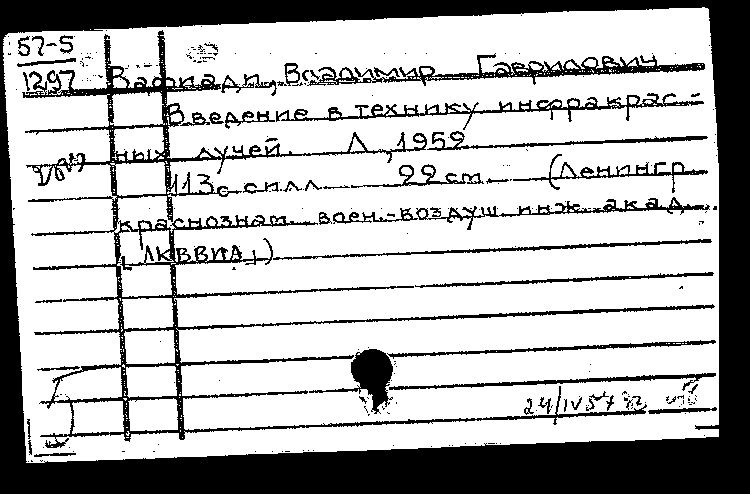 57-5
1297 Вафиади, Владимир Гаврилович
Введение в технику инфракрас-
ных лучей. Л., 1959
113 с с илл. 22 см. (Ленингр.
краснознам. воен.-воздуш. инж. акад.
[ЛКВВИА])
24/IV 57